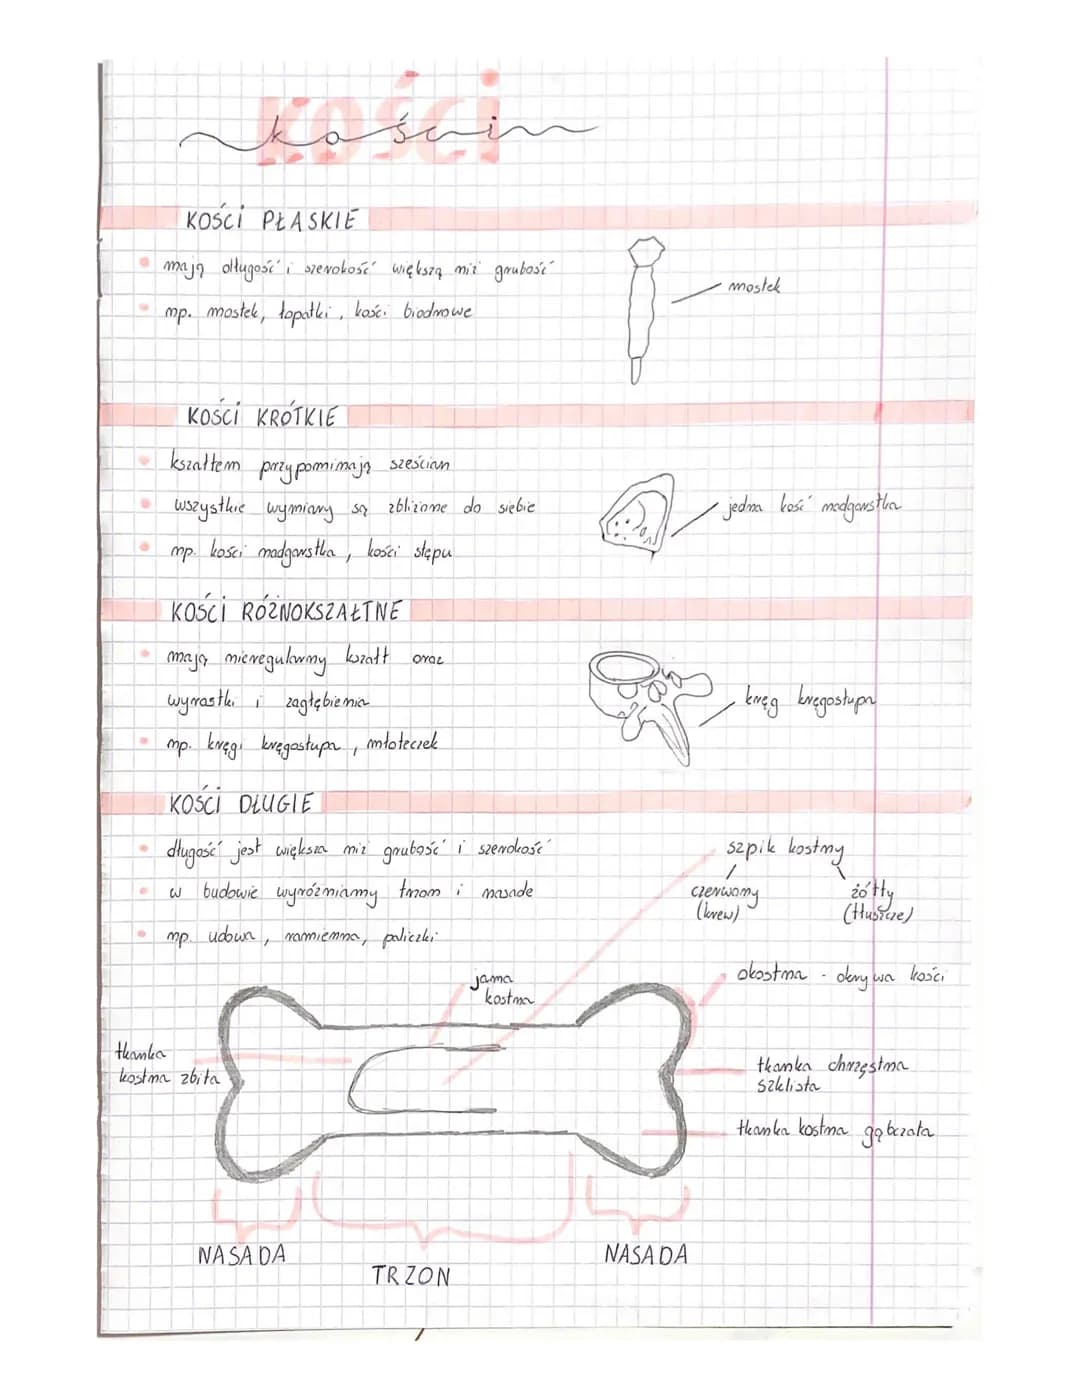 kości
kości
KOŚCI PŁASKIE
mają długość i szerokość większą niż grubość
np. mostek, łopatki, kości biodrowe
mostek
KOŚCI KRÓTKIE
kształtem przypominają sześcian
wszystkie wymiary są zbliżone do siebie
np. kości nadgarstka, kości stępu
jedna kość nadgarstka
KOŚCI RÓŻNOKSZAŁTNE
mają nieregularny kształt oraz
wyrostki i zagłębienia
np. kręgi kręgosłupa, młoteczek
kręg kręgosłupa
KOŚCI DŁUGIE
długość jest większa niż grubość i szerokość
w budowie wyróżniamy trzon i nasade
np. udowa, ramienna, paliczki
szpik kostny
czerwony
(krew)
żółty
(tłuszcze)
jama
kostna
okostna - okrywa kości
tkanka
kostna zbita
tkanka chrzęstna
szklista
tkanka kostna gąbczata
NASADA
TRZON
NASADA